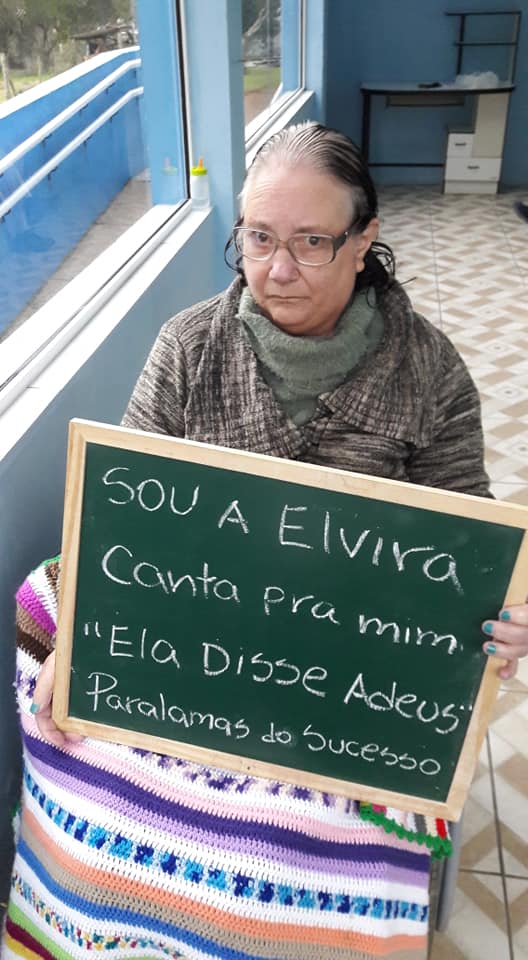 SOU A Elvira
Canta pra mim
"Ela Disse Adeus"
Paralamas do Sucesso